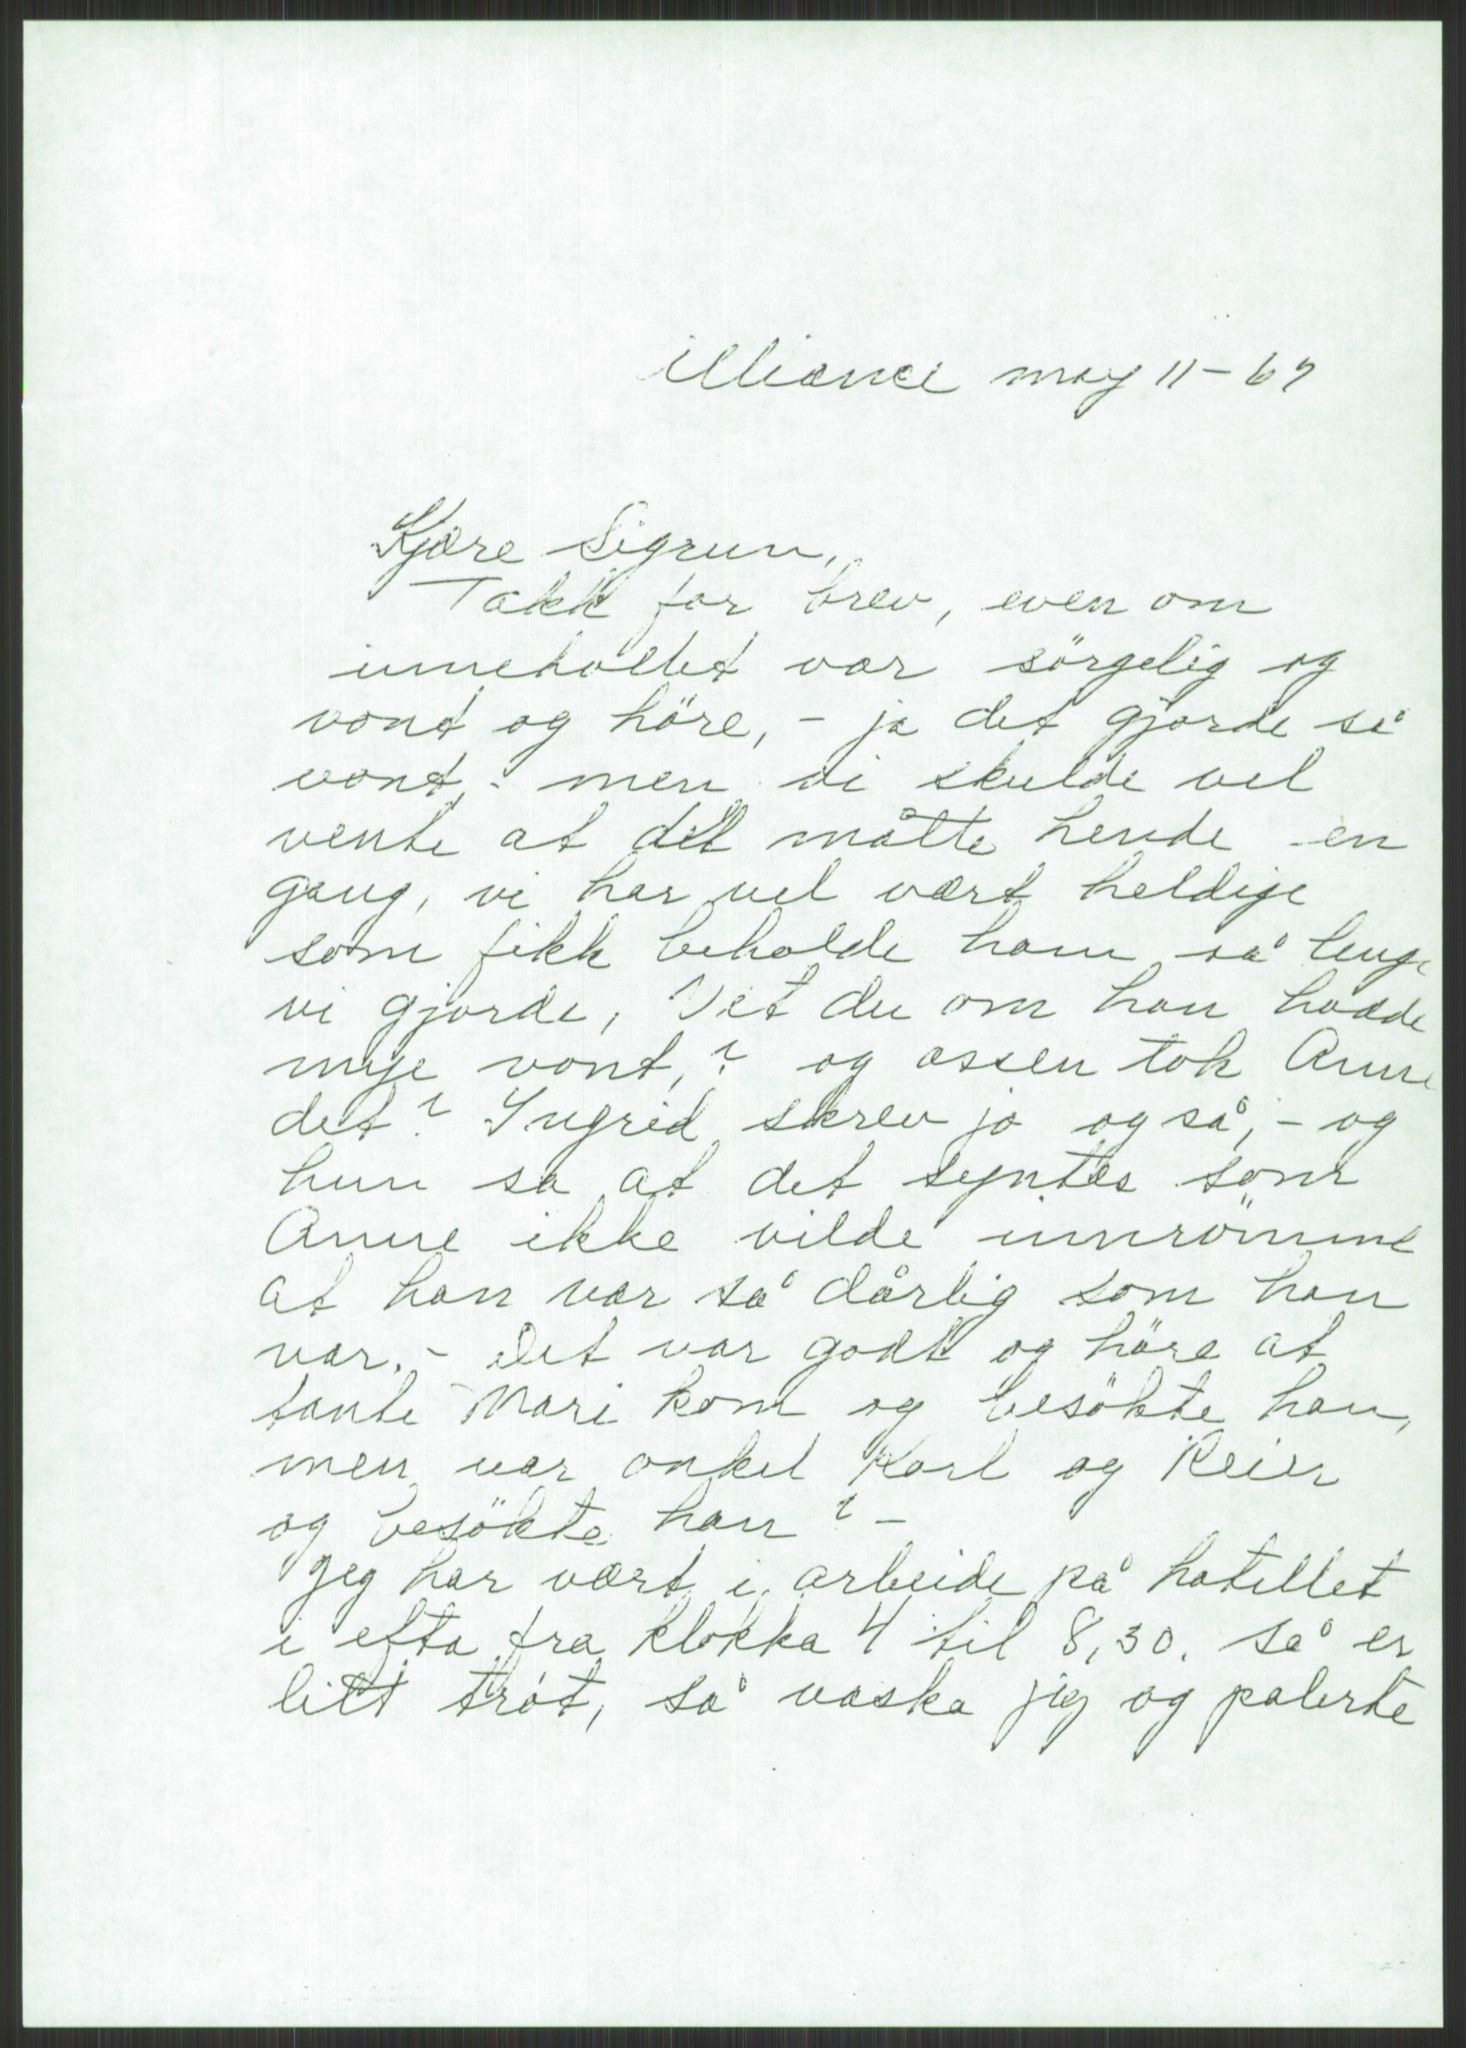 Alliance may 11-67
Kjære Sigrun,
Takk for brev, even om
inneholdet var sörgelig og
vont og höre, - ja det gjorde så
vont, - men vi skulde vel
vente at det måtte hende en
gang, vi har vel vært heldige
som fikk beholde ham så lenge
vi gjorde, Vet du om han hadde
mye vont, ? og åssen tok Anne
det? Ingrid skrev jo også, - og
hun sa at det syntes som
Anne ikke vilde innrömme
at han var så dårlig som han
var. - Det var godt og höre at
tante Mari kom og besökte han,
men var onkel Karl og Reier
og besökte han? -
Jeg har vært i arbeide på hotellet
i efta fra klokka 4 til 8,30. så er
litt tröt, så vaska jeg og polerte